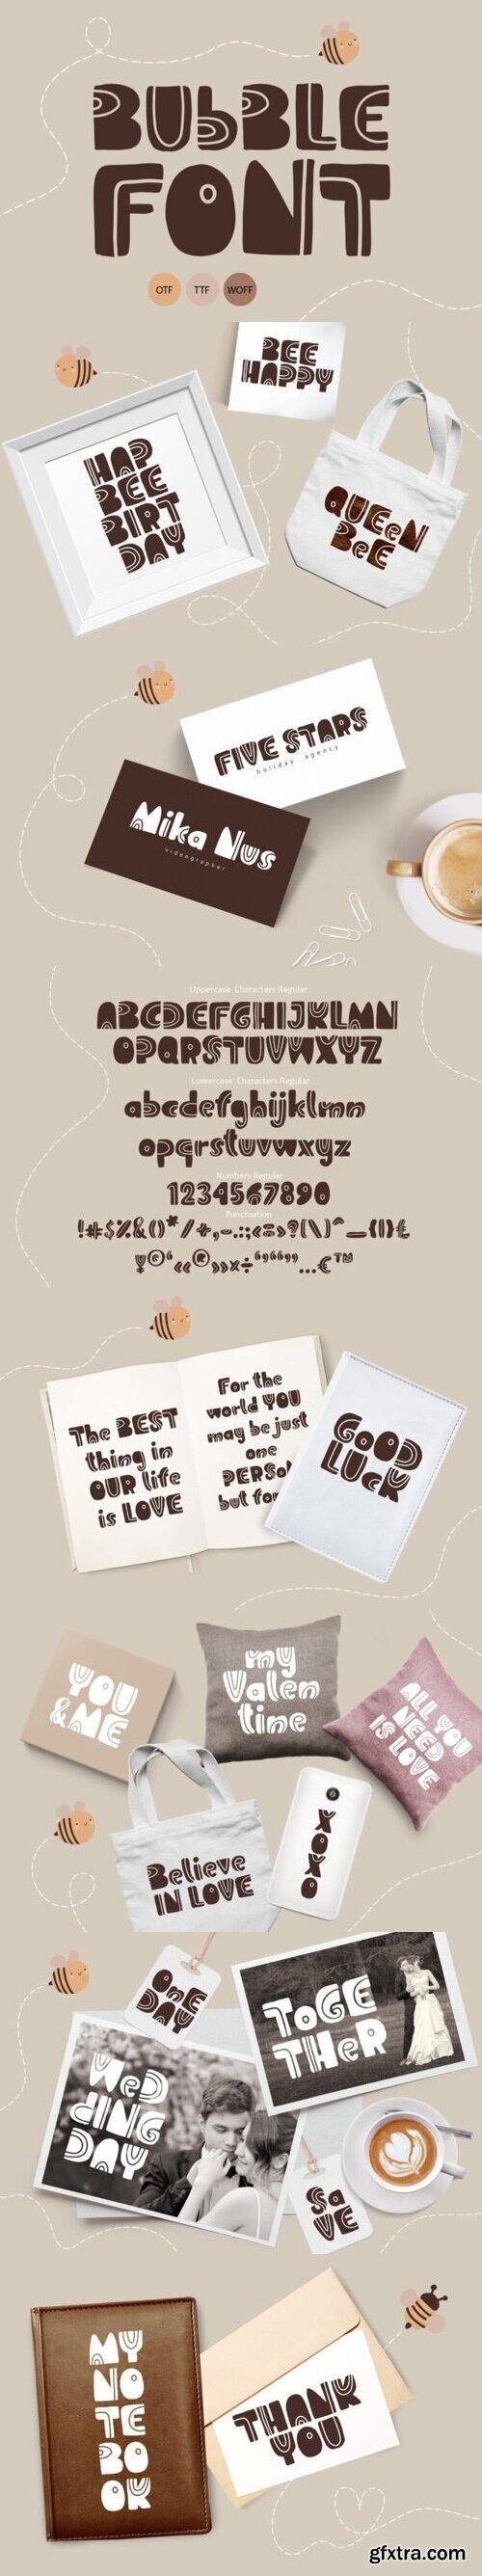 BUbBLE
FONT
OTF TTF WOFF
BEE
HAPPY
HAP
BEE
BIRT
DAY
QUEeN
BeE
FIVE STARS
holiday agency
Mika Nus
videographer
Uppercase Characters Regular
ABCDEFGHIJKLMN
OPQRSTUVWXYZ
Lowercase Characters Regular
abcdefghijklmn
opqrstuvwxyz
Numbers Regular
1234567890
Punctuation
The BEST
thing in
OUR life
is LOVE
For the
world YOU
may be just
one
PERSoN
but for
GoOD
LUcK
YOU
&ME
my
Valen
tine
ALL YOU
NEED
IS LOVE
Believe
IN LOVE
XOXO
OnE
DAY
ToGE
THeR
WeD
dING
DAY
SaVE
MY
NO
TE
BO
OK
THANK
YOU
gfxtra.com